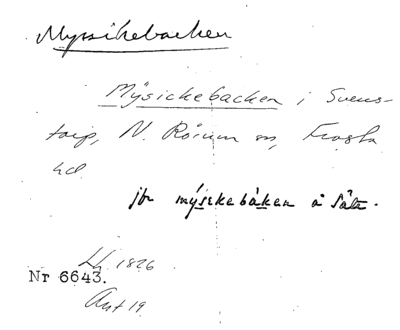 Myssikebacken
Mÿsickebacken i Svens-
torp, N. Rörum sn, Frosta
hd
jfr mýsikebàken å Sät.
LL 1826
Nr 6643.
Akt 19